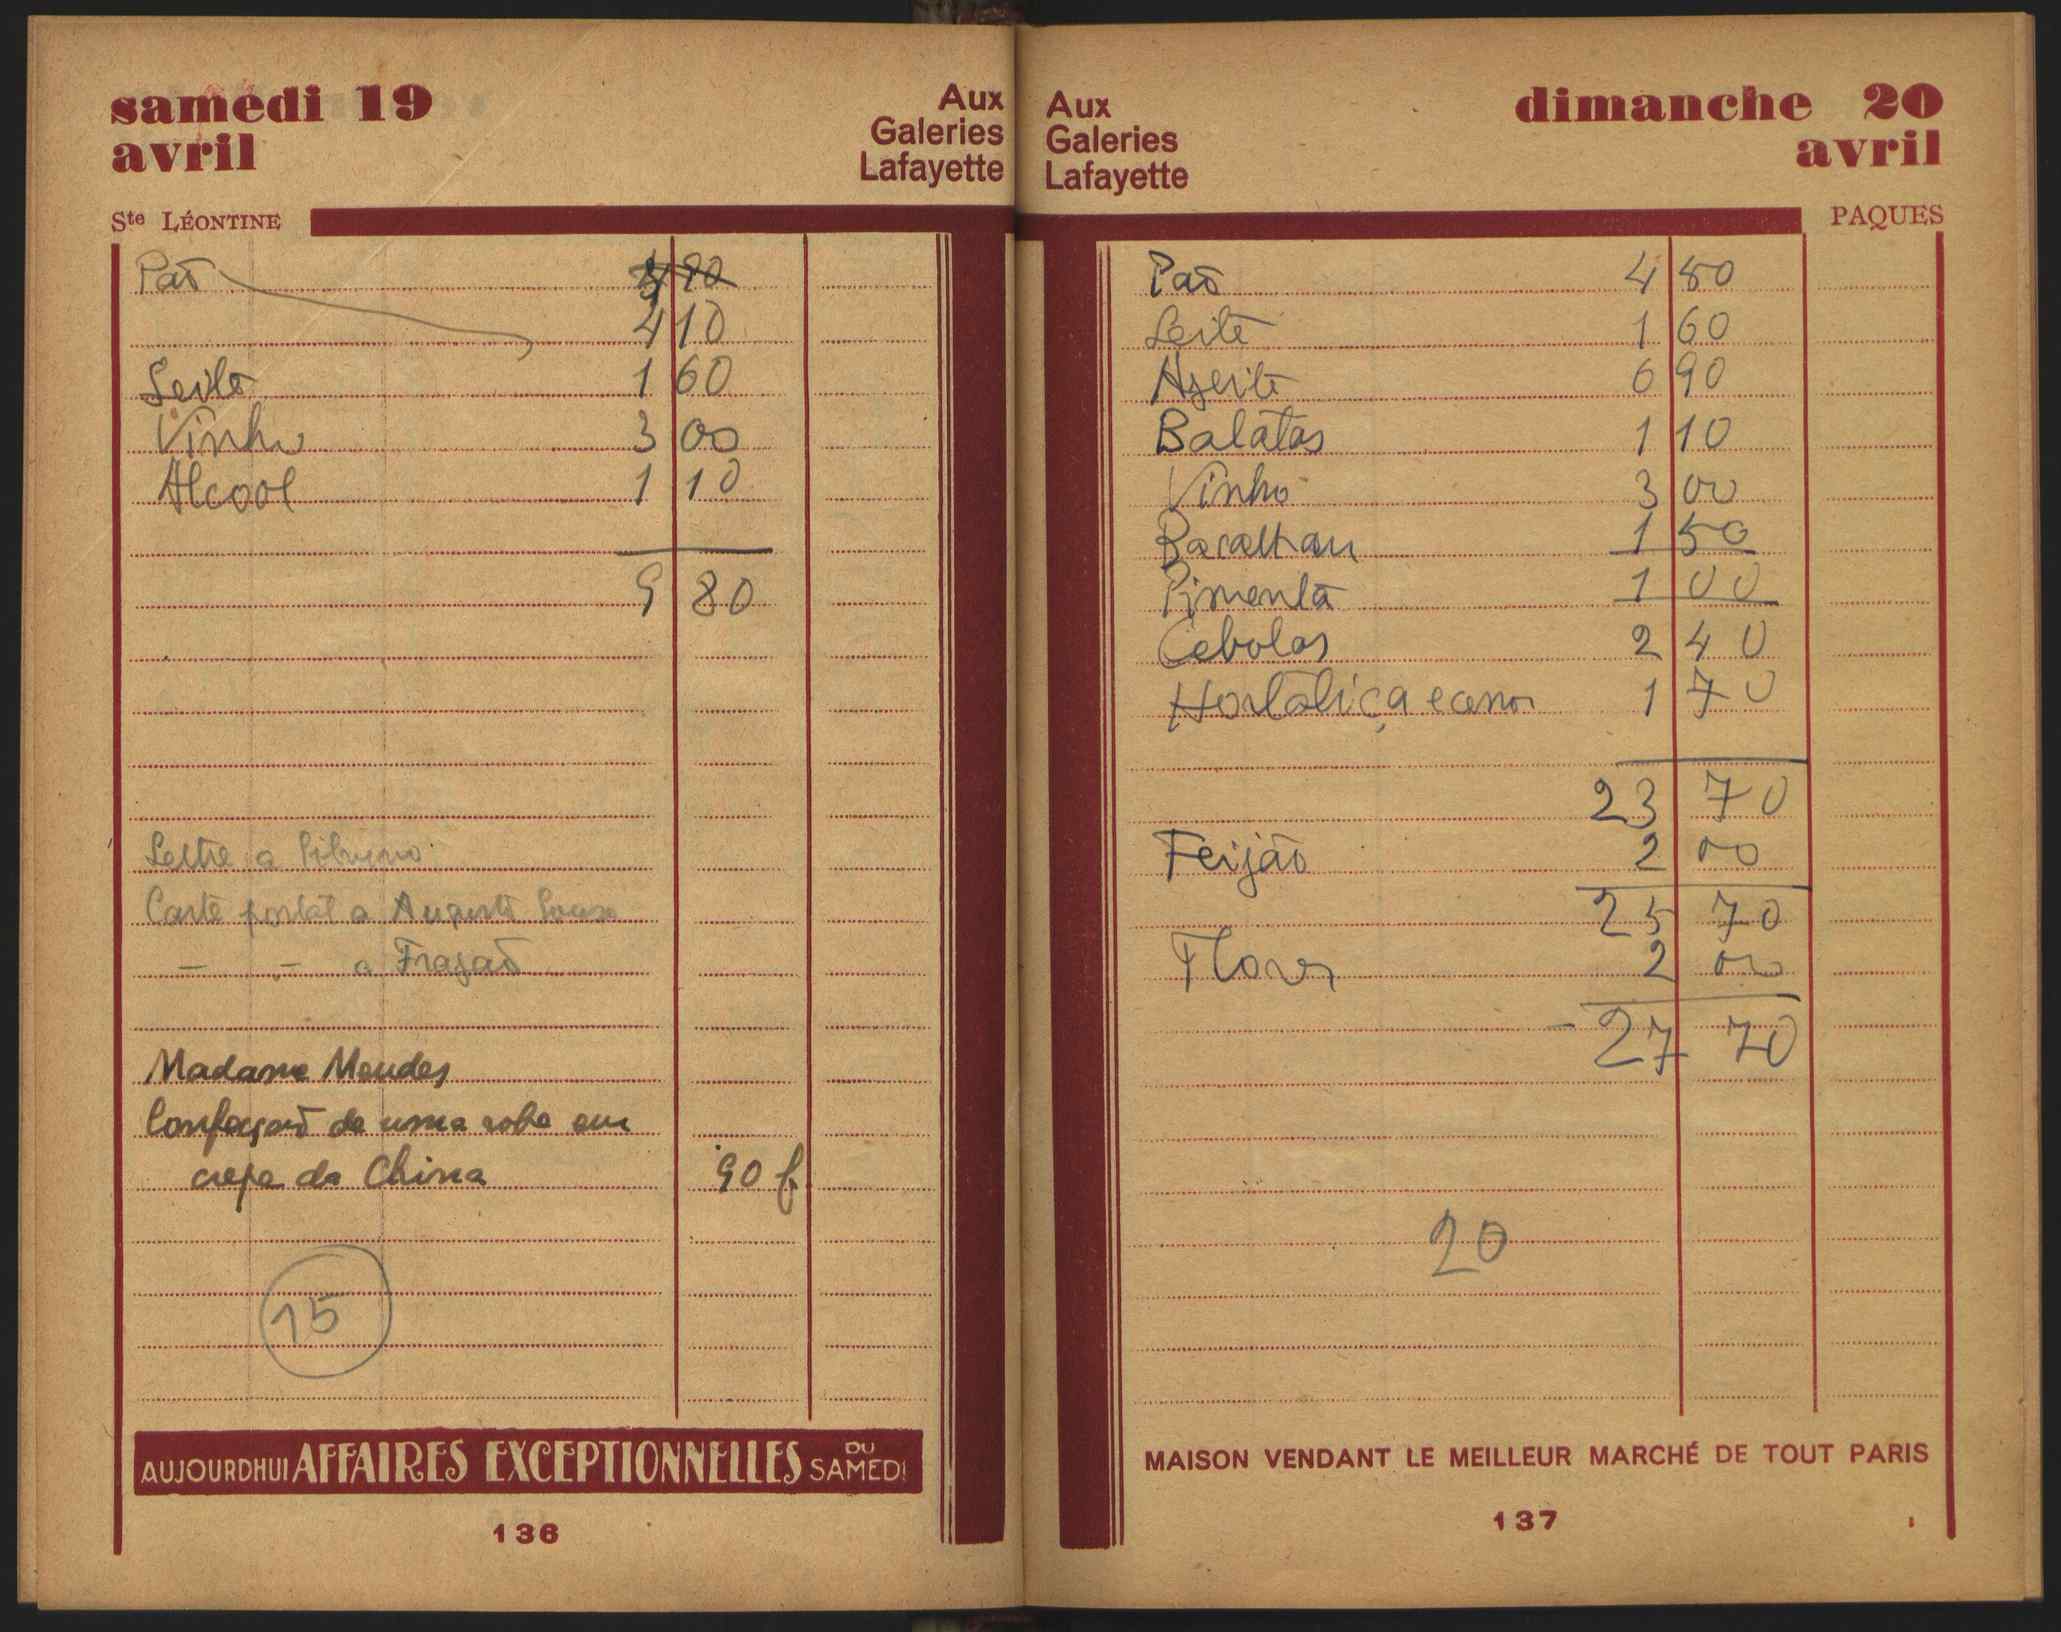 samedi 19
avril
Aux
Galeries
Lafayette
Ste LÉONTINE
Paõ 90
4 10
Leite 1 60
Vinho 3 00
Alcool 1 10
9 80
Lettre a
Carte postal a Auguste
— — a Fragaõ
Madame Mendes
Confeçaõ de uma robe em
crepe da China 90 f.
15
AUJOURDHUI AFFAIRES EXCEPTIONNELLES DU SAMEDI
136
Aux
Galeries
Lafayette
dimanche 20
avril
PAQUES
Paõ 4 50
Leite 1 60
Azeite 6 90
Batatas 1 10
Vinho 3 00
Bacalhau 1 50
Pimenta 1 00
Cebolas 2 40
Hortaliça 1 70
23 70
Feijão 2 00
25 70
Flores 2 00
- 27 70
20
MAISON VENDANT LE MEILLEUR MARCHÉ DE TOUT PARIS
137